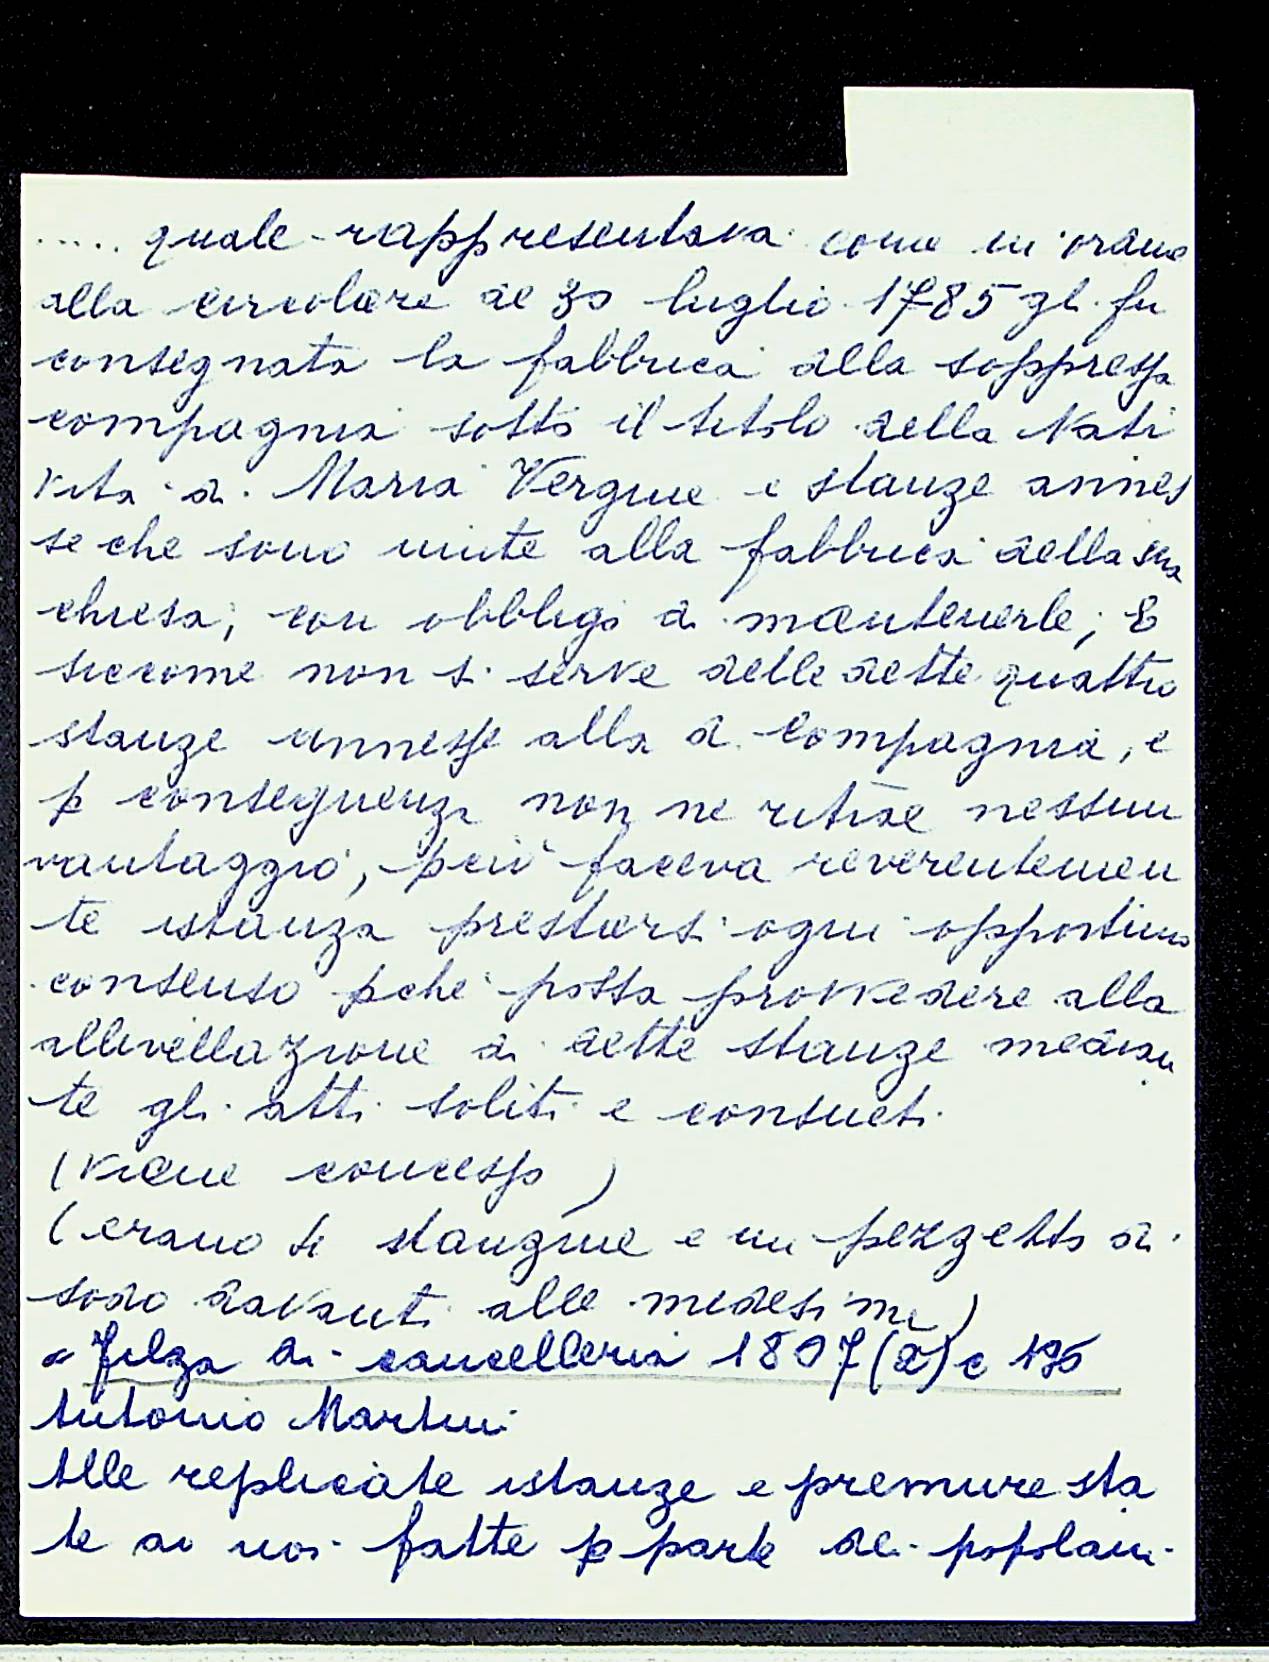 ..... quale rappresentava come in ordine
alla circolare de 30 luglio 1785 gli fu
consegnata la fabbrica della soppressa
compagnia sotto il titolo della Nati
vita di Maria Vergine e stanze annes
se che sono unite alla fabbrica della sua
chiesa, con obbligo di mantenerle; E
siccome non si serve delle dette quattro
stanze annesse alla d. Compagnia, e
p conseguenza non ne ritrae nessun
vantaggio, perciò faceva reverentemen
te istanza prestarsi ogni opportuno
consenso pche possa provvedere alla
allivellazione di dette stanze median
te gli atti soliti e consueti.
(viene concesso)
(erano 4 stanzine e un pezzetto di
sodo davanti alle medesime)
Filza di cancelleria 1807 (2) c 196
Antonio Martini
Alle replicate istanze e premure sta
te a noi fatte p parte dei popolani